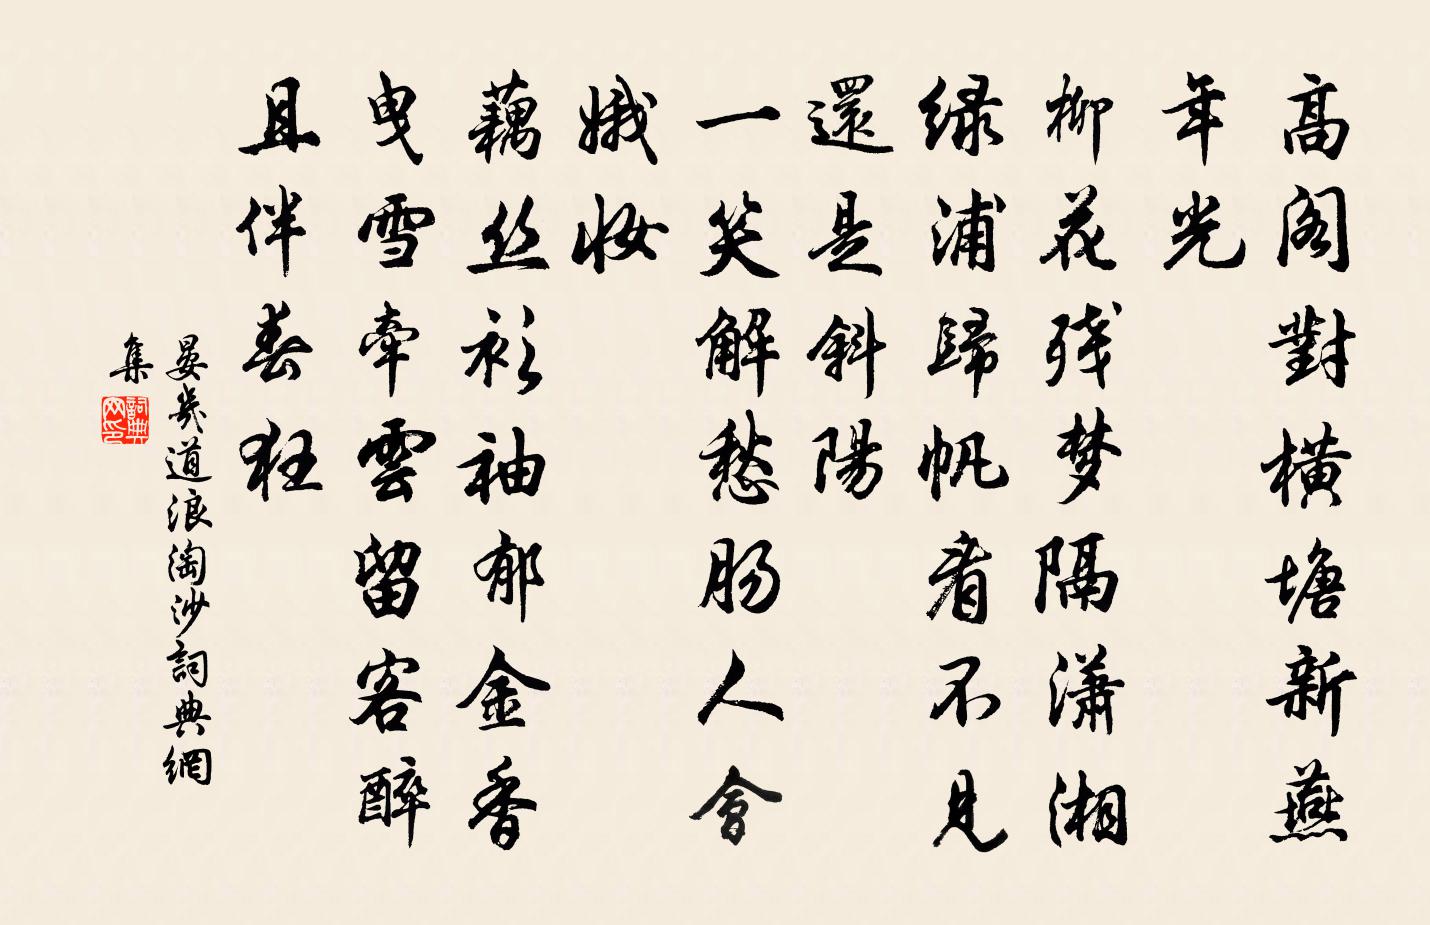 高阁對橫塘新燕
年光
柳花残梦隔瀟湘
緑浦歸帆看不見
還是斜陽
一笑解愁肠人會
娥妝
藕丝衫袖郁金香
曳雪牽雲留客醉
且伴春狂
晏幾道浪淘沙詞典網
集
詞典
网印